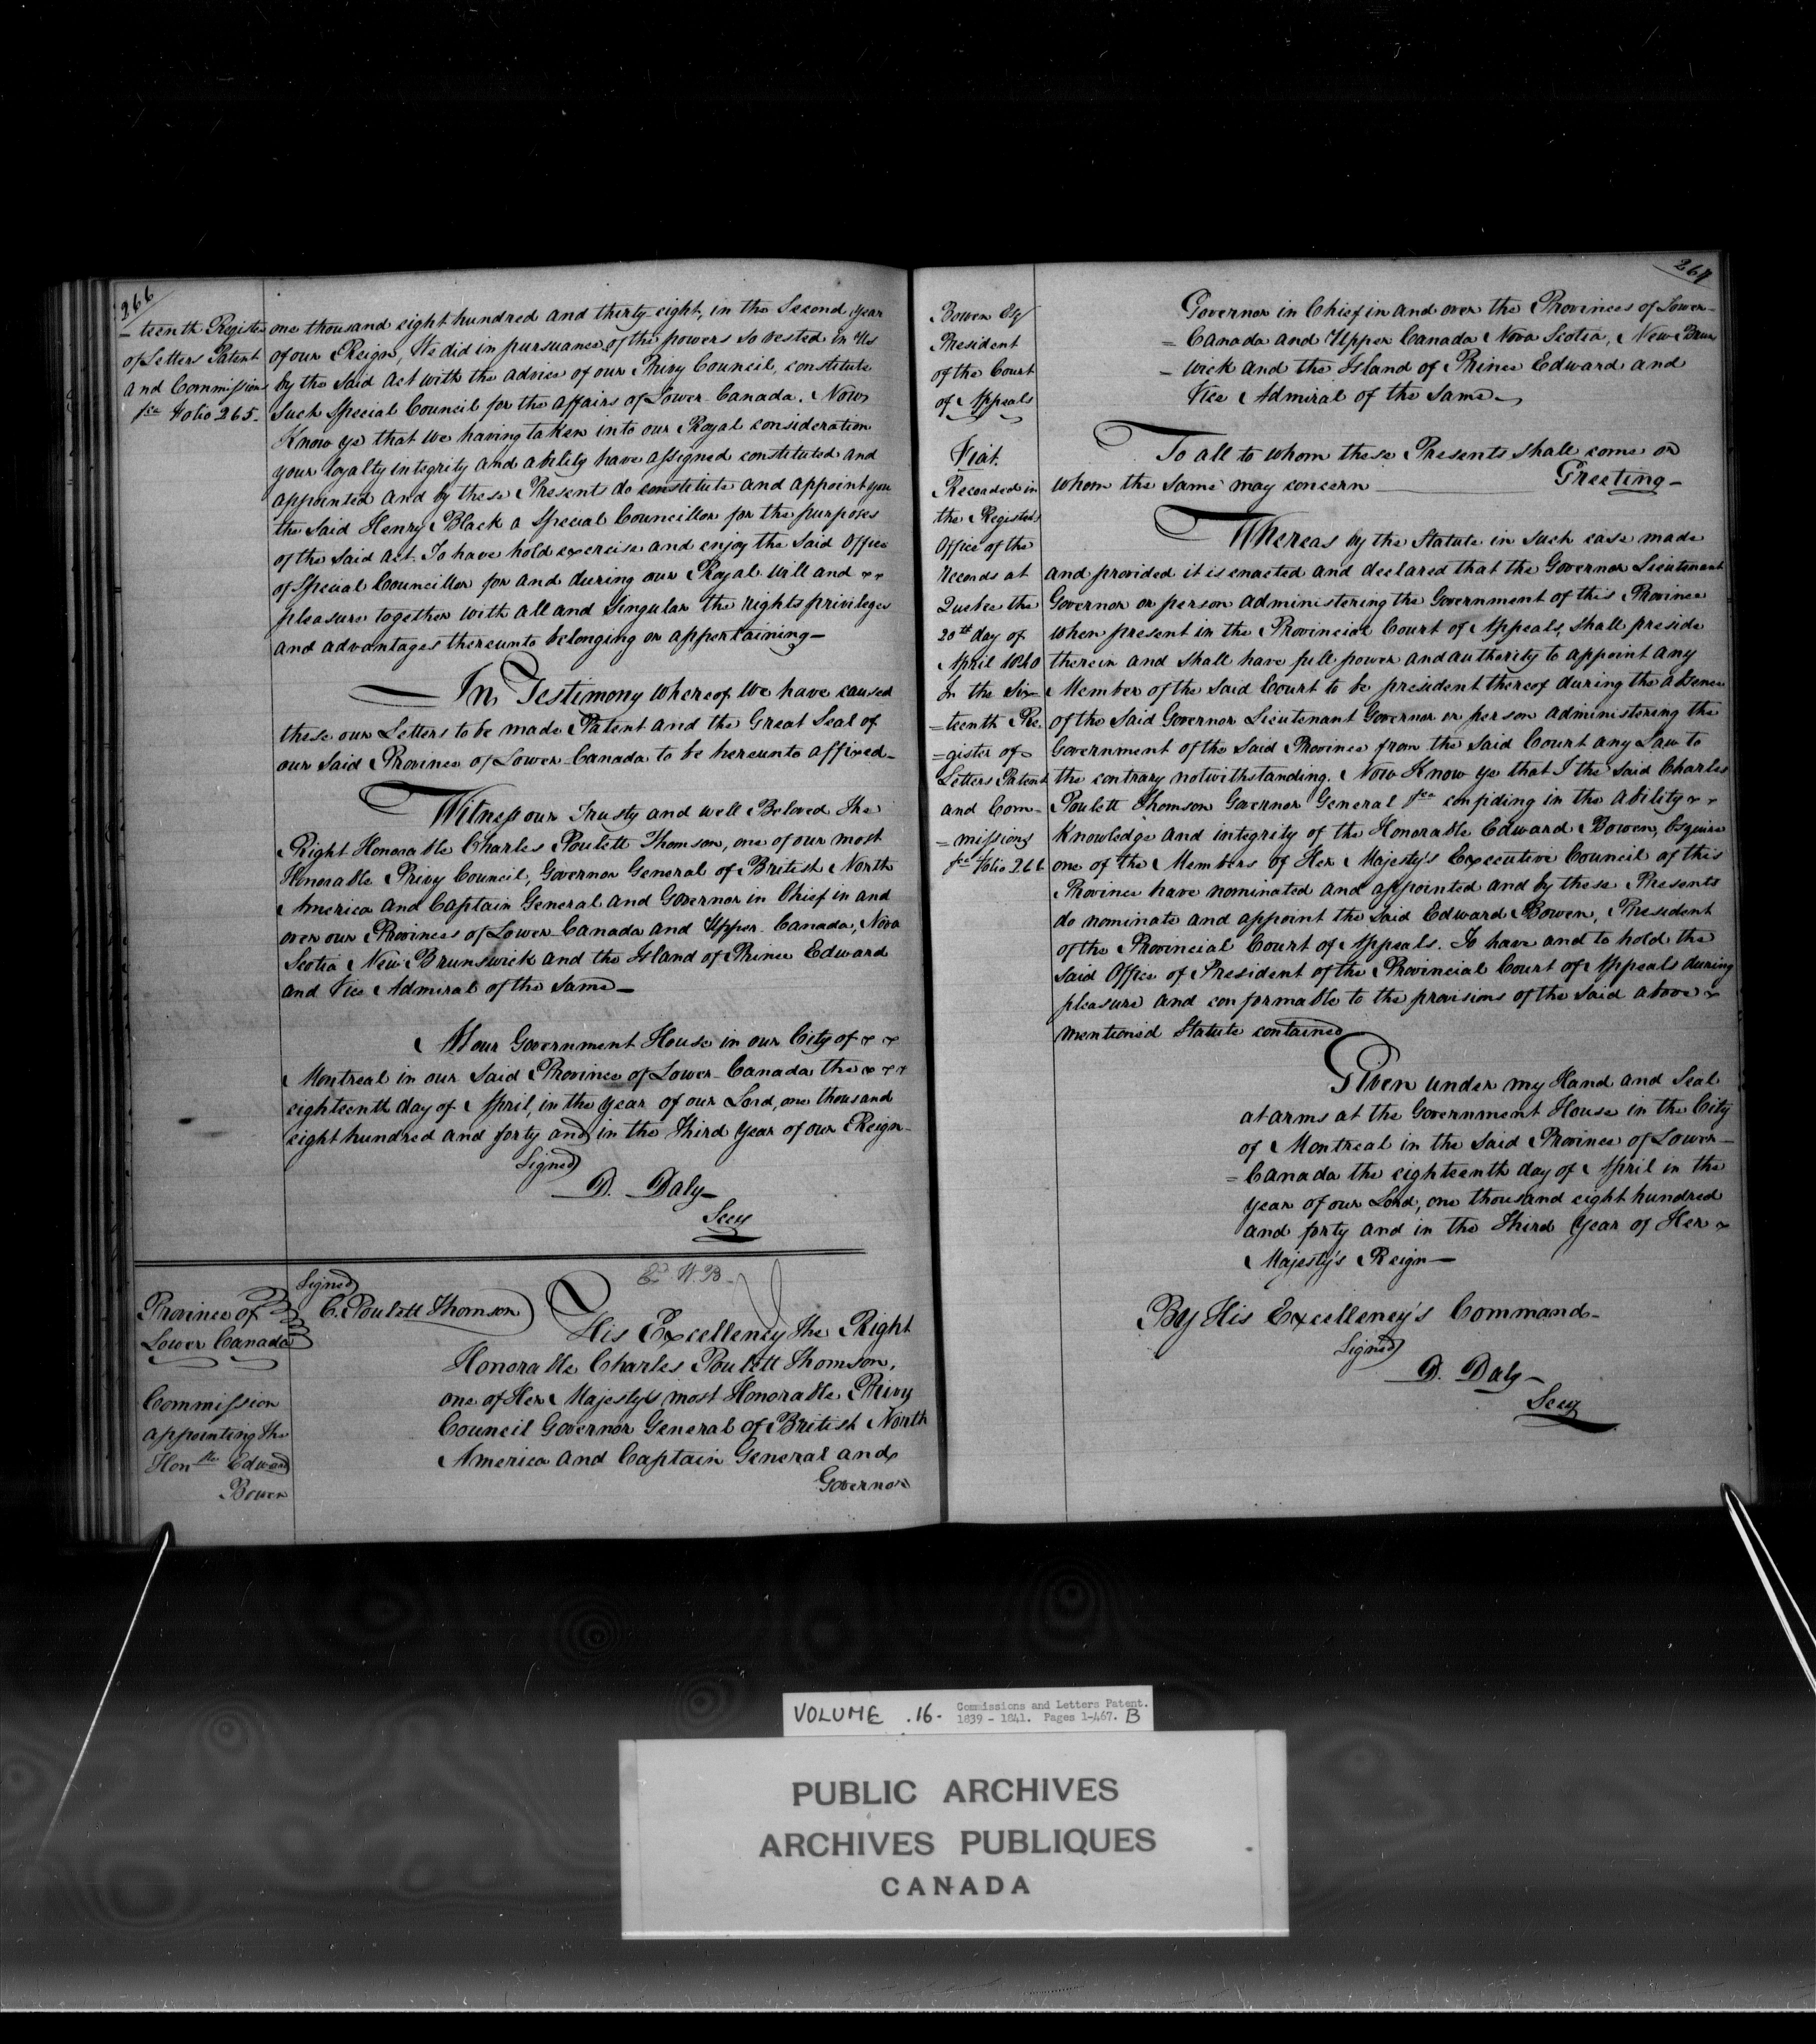 266
- teenth Register
of Letters Patent
and Commissions
&ca Folio 265.
one thousand eight hundred and thirty-eight, in the Second Year
of our Reign, We did in pursuance of the powers so vested in Us
by the said Act with the advice of our Privy Council, constitute
such Special Council for the affairs of Lower-Canada. Now
Know ye that We having taken into our Royal consideration
your loyalty integrity and ability have assigned constituted and
appointed and by these Presents do constitute and appoint you
the said Henry Black a Special Councillor for the purposes
of the said Act. To have hold exercise and enjoy the said Office
of Special Councillor for and during our Royal Will and
pleasure together with all and Singular the rights privileges
and advantages thereunto belonging or appertaining—
In Testimony whereof We have caused
these our Letters to be made Patent and the Great Seal of
our said Province of Lower-Canada to be hereunto affixed—
Witness our Trusty and well Beloved the
Right Honorable Charles Poulett Thomson, one of our most
Honorable Privy Council, Governor General of British North
America and Captain General and Governor in Chief in and
over our Provinces of Lower-Canada and Upper-Canada, Nova
Scotia New-Brunswick and the Island of Prince Edward
and Vice Admiral of the Same—
At our Government House in our City of
Montreal in our said Province of Lower-Canada the
eighteenth day of April, in the year of our Lord, one thousand
eight hundred and forty and in the Third Year of our Reign—
Signed
D. Daly—
Secy
Province of
Lower Canada
Commission
appointing the
Honble Edward
Bowen
Signed
C. Poulett Thomson
Ed. W. B.
His Excellency the Right
Honorable Charles Poulett Thomson,
one of Her Majesty's most Honorable Privy
Council Governor General of British North
America and Captain General and
Governor
267
Bowen Esq
President
of the Court
of Appeals
Fiat.
Recorded in
the Registers
Office of the
Records at
Quebec the
20th day of
April 1840
In the Six=
=teenth Re.
=gister of
Letters Patent
and Com-
=missions
&ca Folio 266
Governor in Chief in and over the Provinces of Lower-
= Canada and Upper Canada Nova Scotia, New-Bruns
- wick and the Island of Prince Edward and
Vice Admiral of the Same—
To all to whom these Presents shall come or
whom the same may concern — Greeting—
Whereas by the Statute in such case made
and provided it is enacted and declared that the Governor Lieutenant
Governor or person administering the Government of this Province
when present in the Provincial Court of Appeals, shall preside
therein and shall have full power and authority to appoint any
Member of the said Court to be president thereof during the absence
of the said Governor Lieutenant Governor or person administering the
Government of the said Province from the said Court any Law to
the contrary notwithstanding. Now Know ye that I the said Charles
Poulett Thomson Governor General &ca confiding in the ability
Knowledge and integrity of the Honorable Edward Bowen, Esquire
one of the Members of Her Majesty's Executive Council of this
Province have nominated and appointed and by these Presents
do nominate and appoint the said Edward Bowen, President
of the Provincial Court of Appeals. To have and to hold the
said Office of President of the Provincial Court of Appeals during
pleasure and conformable to the provisions of the said above
mentioned Statute contained
Given under my Hand and Seal
at arms at the Government House in the City
of Montreal in the said Province of Lower—
= Canada the eighteenth day of April in the
year of our Lord, one thousand eight hundred
and forty and in the Third Year of Her
Majesty's Reign—
By His Excellency's Command—
Signed
D. Daly—
Secy
VOLUME .16. Commissions and Letters Patent.
1839 - 1841. Pages 1-467. B
PUBLIC ARCHIVES
ARCHIVES PUBLIQUES
CANADA